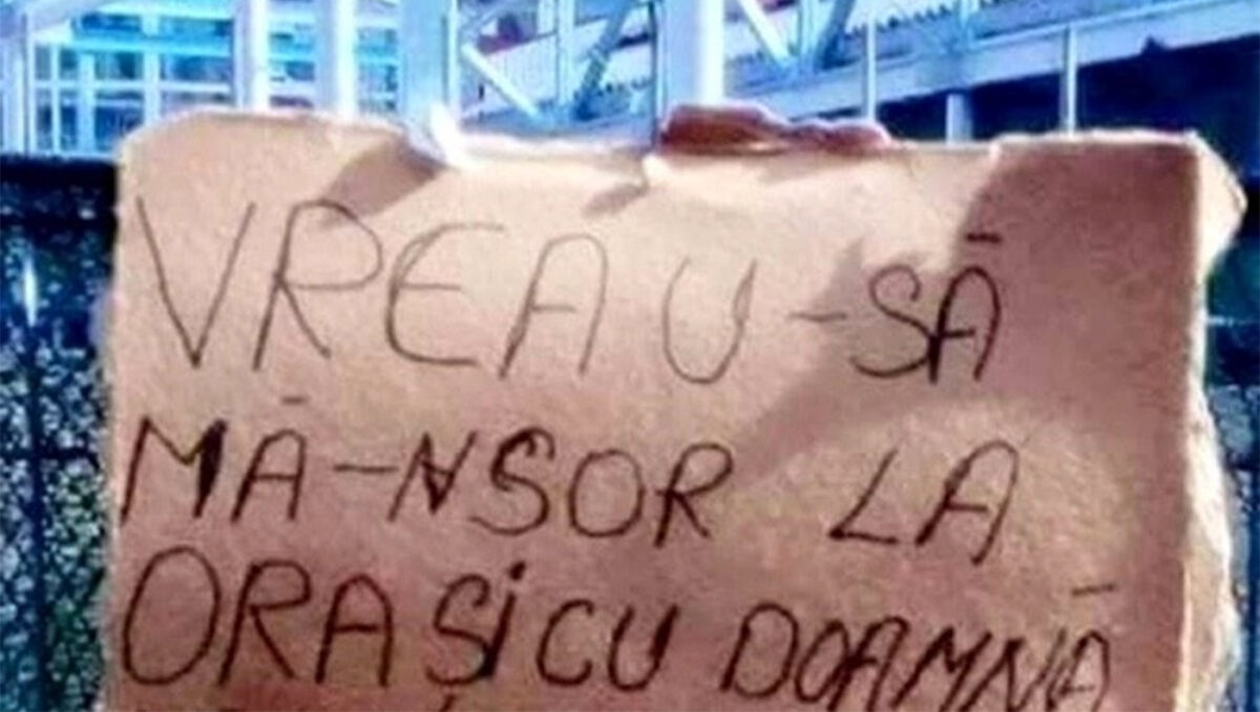 VREAU-SĀ
MĀ-NSOR LA
ORAȘI CU DOAMNĀ